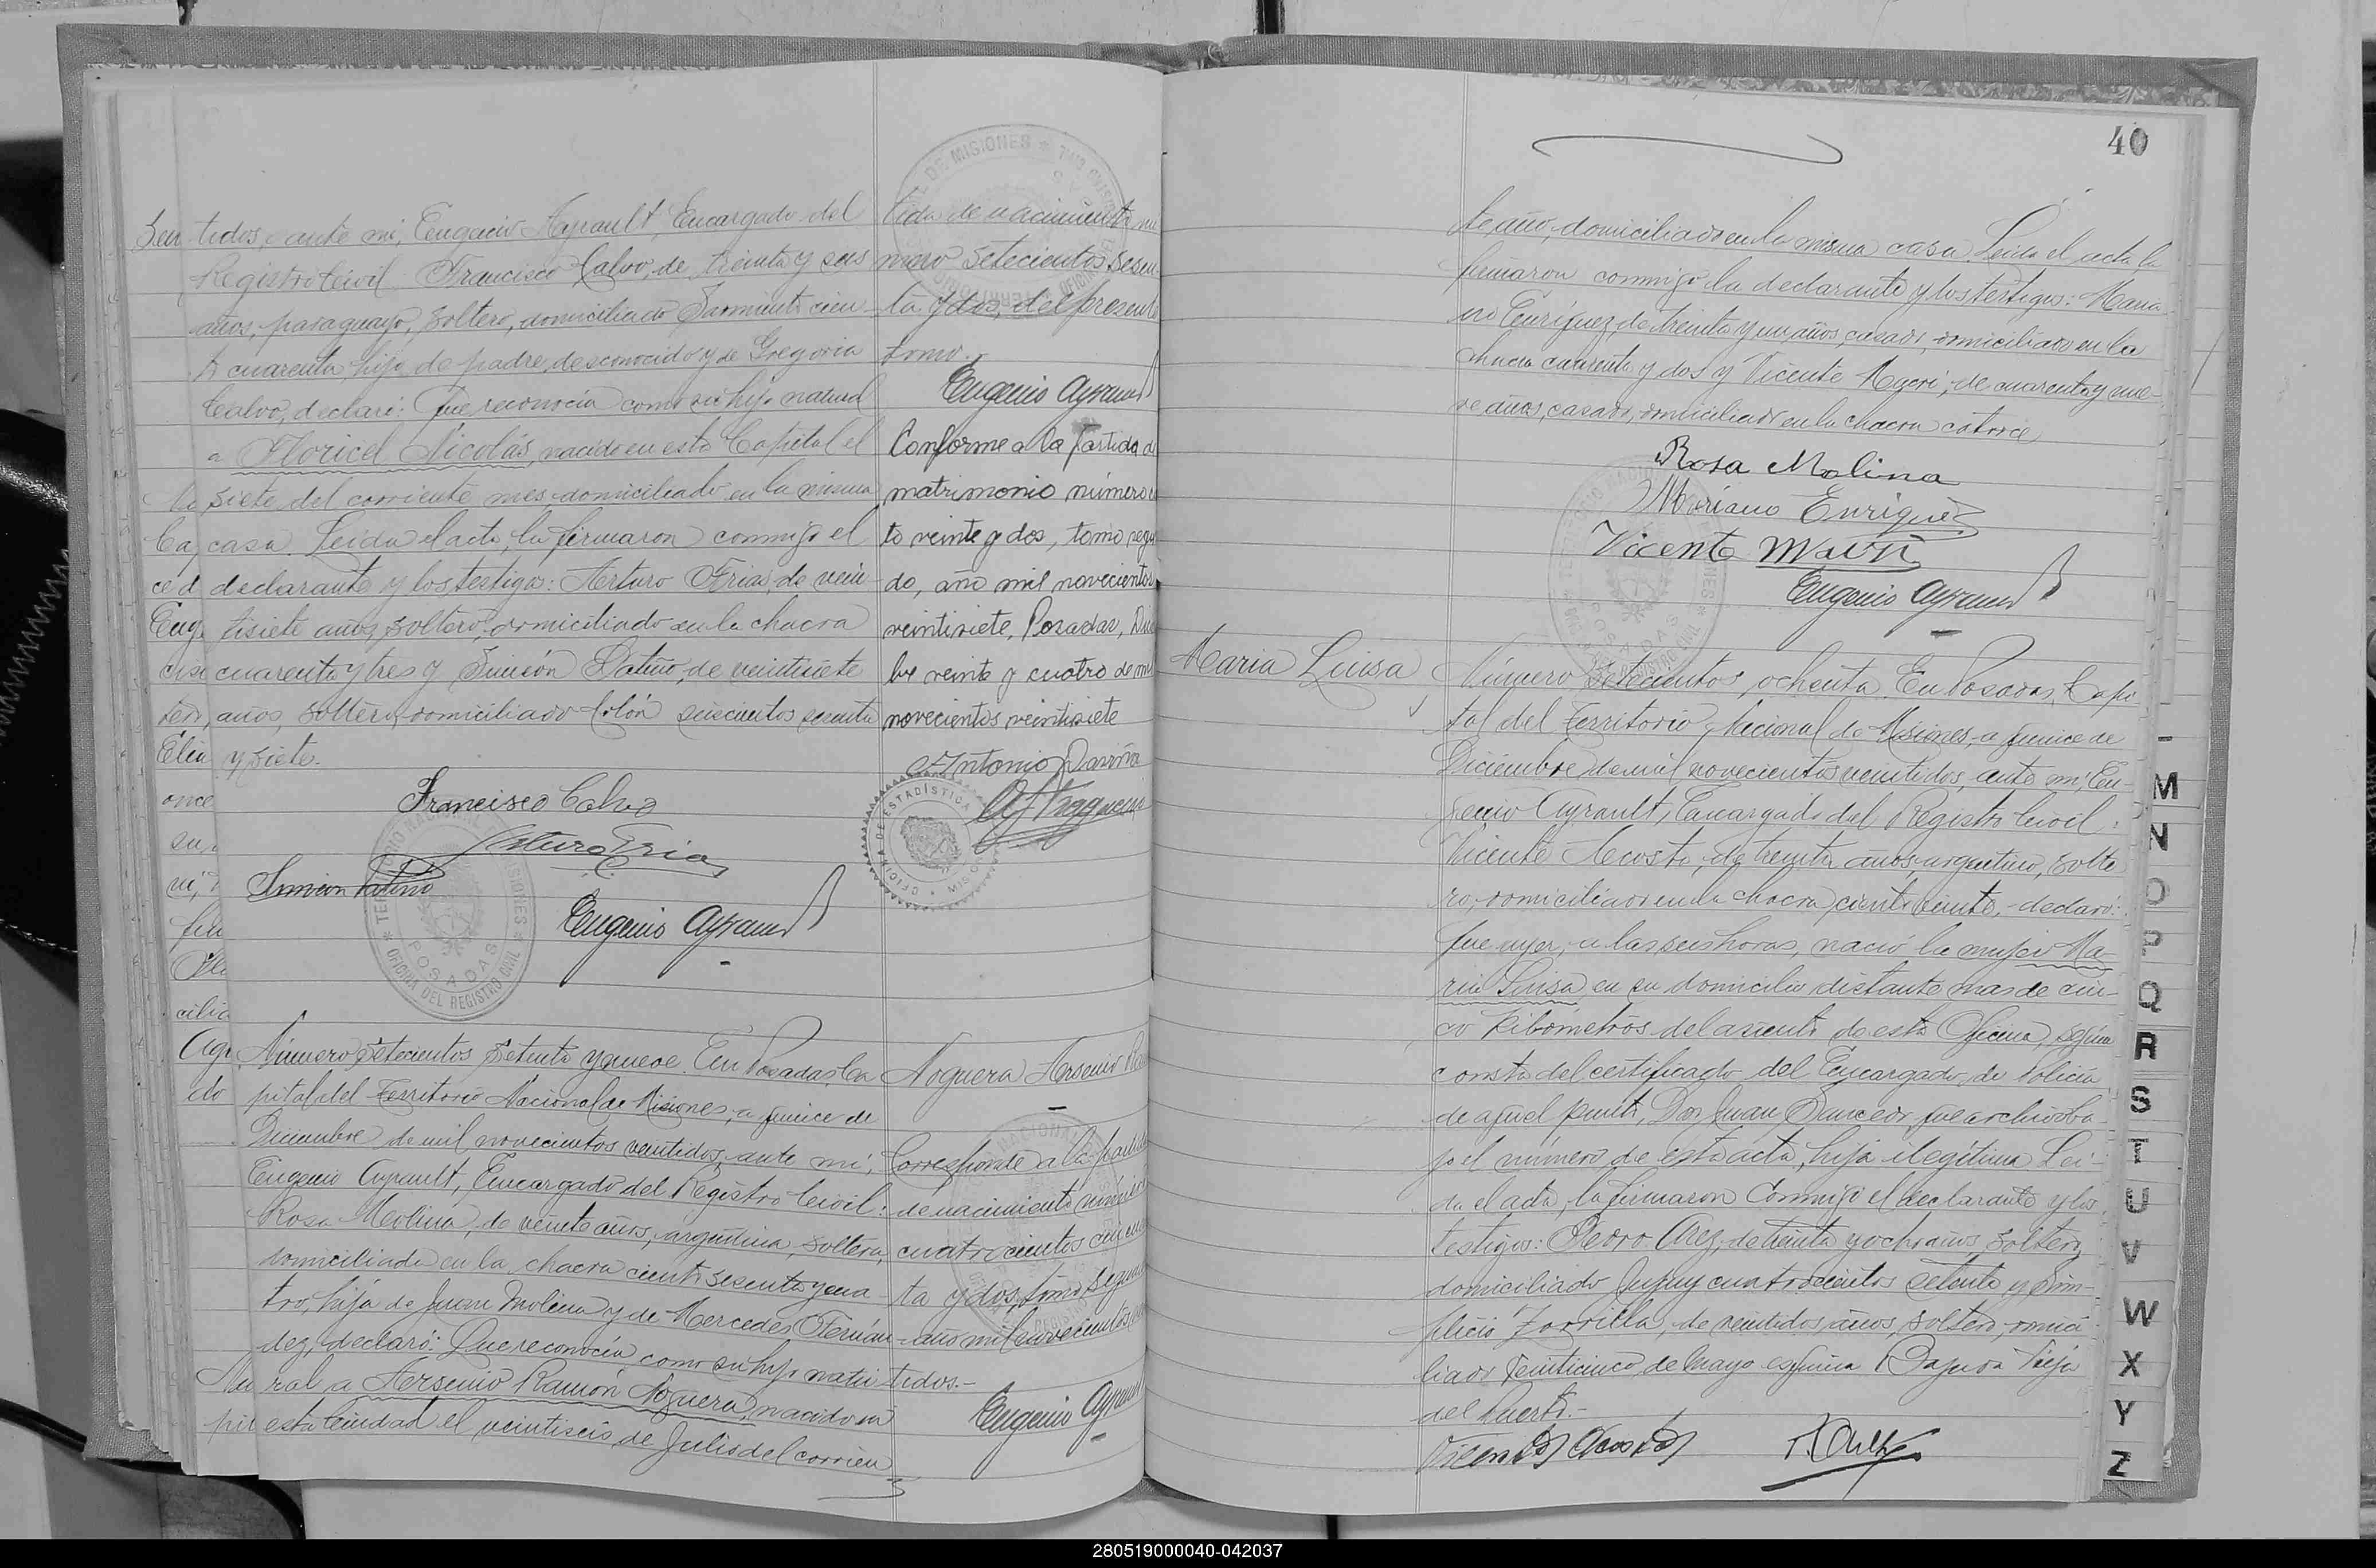 tidos, ante mi, Eugenio Ayrault, Encargado del
Registro Civil Francisco Calvo, de treinta y seis
años, paraguayo, soltero, domiciliado Sarmiento cien
to cuarenta, hijo de padre desconocido y de Gregoria
Calvo, declaró: Que reconocía como su hijo natural
a Floricel Nicolás, nacido en esta Capital el
siete del corriente mes, domiciliado en la misma
casa. Leida el acta, la firmaron conmigo el
declarante y los testigos: Arturo Frias, de vein
tisiete años, soltero, domiciliado en la chacra
cuarenta y tres y Simeón Patiño, de veintisiete
años, soltero, domiciliado Colón seiscientos sesenta
y siete.
Francisco Calvo
Arturo Frias
Simeon Patino
Eugenio Ayrault
tida de nacimiento nu
mero setecientos sesen
ta y dos, del presente
tomo.
Eugenio Ayrault
Conforme a la partida d
matrimonio número
to veinte y dos, tomo segu
do, año mil novecientos
veintisiete, Posadas, Dic
bre veinte y cuatro de mil
novecientos veintisiete
Antonio
OFICINA DE ESTADÍSTICA
Número Setecientos Setenta y nueve. En Posadas, Ca
pital del Territorio Nacional de Misiones, a quince de
Diciembre de mil novecientos veintidos, ante mi,
Eugenio Ayrault, Encargado del Registro Civil:
Rosa Molina, de veinte años, argentina, soltera,
domiciliada en la chacra ciento sesenta y cua
tro, hija de Juan Molina y de Mercedes Fernán
dez, declaró: Que reconocía como su hijo natu
ral a Arsenio Ramón Noguera, nacido en
esta Ciudad el veintiseis de Julio del corrien
Noguera Arsenio Ra
Corresponde a la partida
de nacimiento número
cuatrocientos cincuen
ta y dos, tomo segun
año mil novecientos
tidos.-
Eugenio Ayrault
40
te año, domiciliado en la misma casa. Leida el acta, la
firmaron conmigo la declarante y los testigos: Maria
no Enríquez, de treinta y un años, casado, domiciliado en la
chacra cuarenta y dos y Vicente, de cuarenta y nue
ve años, casado, domiciliado en la chacra catorce
Rosa Molina
Mariano Enriquez
Vicente
Eugenio Ayrault
Maria Luisa
Número Setecientos ochenta. En Posadas, Capi
tal del Territorio Nacional de Misiones, a quince de
Diciembre de mil novecientos veintidos, ante mi, Eu
genio Ayrault, Encargado del Registro Civil:
Vicente Acosta, de treinta años, argentino, solte
ro, domiciliado en la chacra ciento veinte, declaró:
Que ayer, a las seis horas, nació la mujer Ma
ria Luisa en su domicilio distante mas de cin
co kilómetros del asiento de esta Oficina, según
consta del certificado del Encargado de Policía
de aquel punto, Don Juan, que archivo ba
jo el número de esta acta, hija ilegítima. Lei
da el acta, la firmaron conmigo el declarante y los
testigos: Pedro, de treinta y ocho años, soltero,
domiciliado Jujuy cuatrocientos setenta y Sim
plicio Zorrilla, de veintidos años, soltero, domici
liado Veinticinco de Mayo esquina Bajada Vieja
del Puerto.-
Vicente Acosta
M
N
O
P
Q
R
S
T
U
V
W
X
Y
Z
280519000040-042037